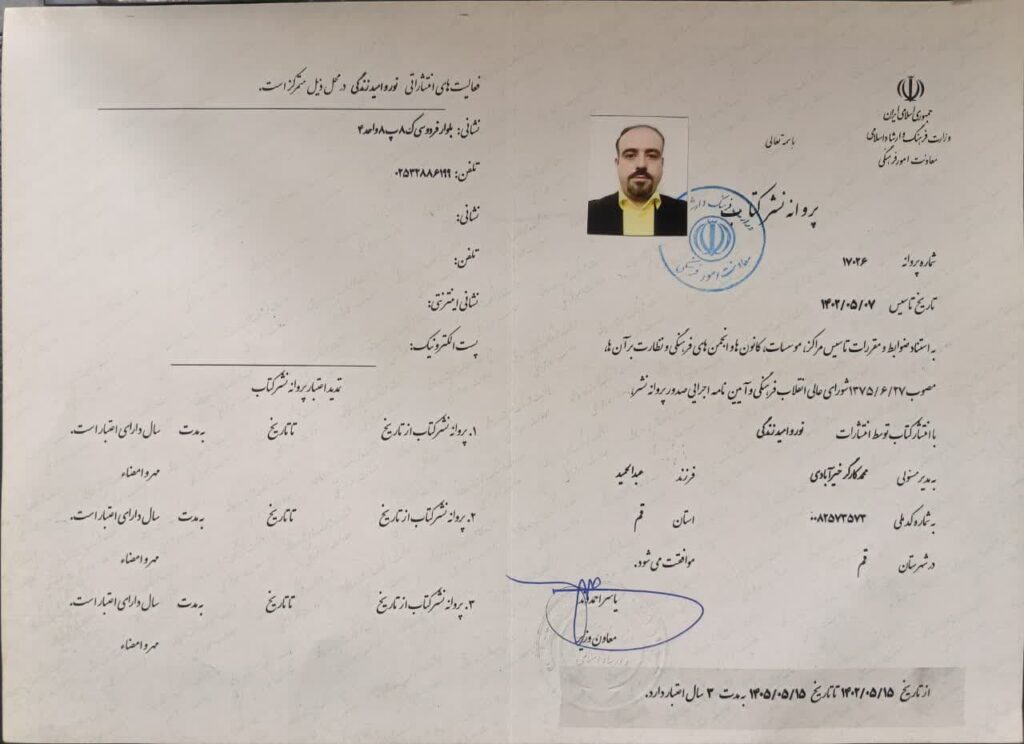 جمهوری اسلامی ایران
وزارت فرهنگ و ارشاد اسلامی
معاونت امور فرهنگی
باسمه تعالی
پروانه نشر کتاب
معاونت امور فرهنگی
شماره پروانه ۱۷۰۲۶
تاریخ تاسیس ۱۴۰۲/۰۵/۰۷
به استناد ضوابط و مقررات تاسیس مراکز، موسسات، کانون ها و انجمن های فرهنگی و نظارت بر آن ها،
مصوب ۱۳۷۵/۶/۲۷ شورای عالی انقلاب فرهنگی و آیین نامه اجرایی صدور پروانه نشر،
با انتشار کتاب توسط انتشارات نور و امید زندگی
به مدیر مسئولی محمد کارگر خیرآبادی فرزند عبدالحمید
به شماره کد ملی ۰۰۸۲۵۷۳۵۷۳ استان قم
در شهرستان قم موافقت می شود.
یاسر احمدوند
معاون وزیر
از تاریخ ۱۴۰۲/۰۵/۱۵ تا تاریخ ۱۴۰۵/۰۵/۱۵ به مدت ۳ سال اعتبار دارد.
فعالیت های انتشاراتی نور و امید زندگی در محل ذیل متمرکز است.
نشانی: بلوار فردوسی ک۸ پ۸ واحد۴
تلفن: ۰۲۵۳۲۸۸۶۱۹۹
نشانی:
تلفن:
نشانی اینترنتی:
پست الکترونیک:
تمدید اعتبار پروانه نشر کتاب
۱. پروانه نشر کتاب از تاریخ تا تاریخ به مدت سال دارای اعتبار است.
مهر و امضاء
۲. پروانه نشر کتاب از تاریخ تا تاریخ به مدت سال دارای اعتبار است.
مهر و امضاء
۳. پروانه نشر کتاب از تاریخ تا تاریخ به مدت سال دارای اعتبار است.
مهر و امضاء